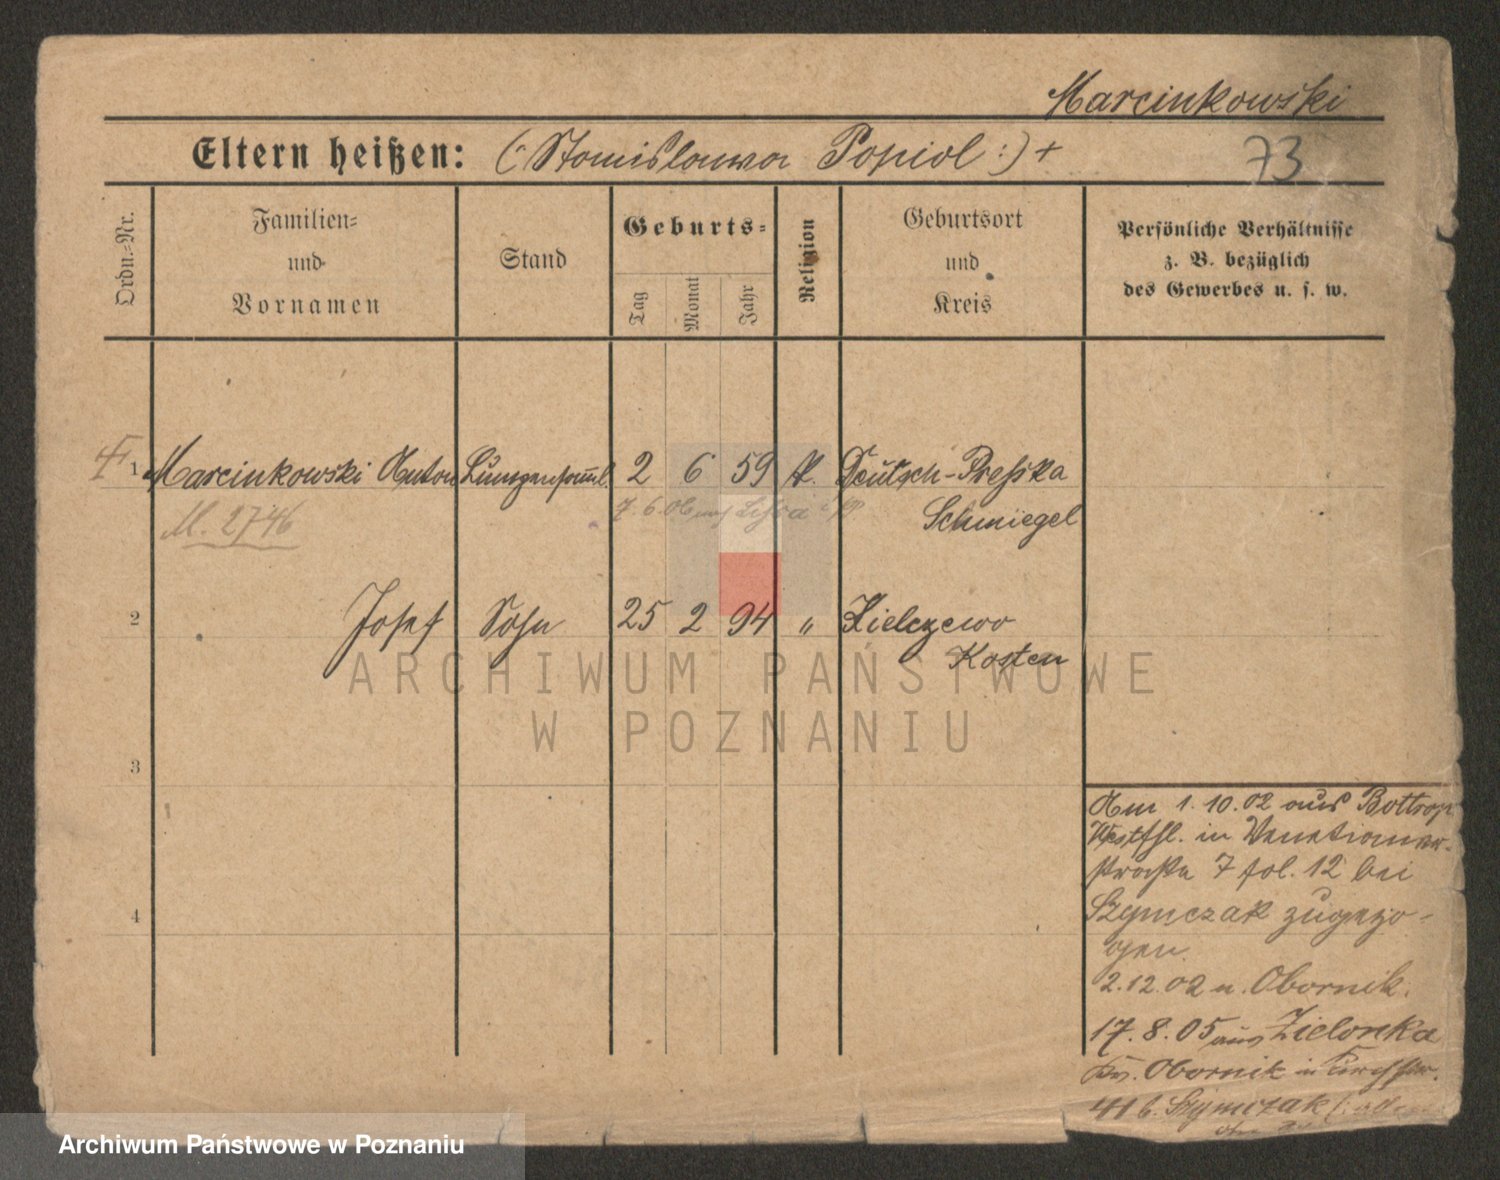 Marcinkowski
Eltern heißen: (: Stanislawa Popiol :) +
73
Ordn.=Nr.
Familien=
und
Vornamen
Stand
Geburts=
Tag
Monat
Jahr
Religion
Geburtsort
und
Kreis
Persönliche Verhältnisse
z. B. bezüglich
des Gewerbes u. s. w.
1 Marcinkowski Anton Lumpensamml. 2 6 59 k. Deutsch-Presse
M. 2746
Schmiegel
2 Josef Sohn 25 2 94 " Kielczewo
Kosten
ARCHIWUM PAŃSTWOWE
W POZNANIU
3
4
Am 1.10.02 aus Bottrop
Westfhl. in Venetianer-
straße 7 fol. 12 bei
Szymczak zugezo-
gen.
2.12.02 n. Obornik.
17.8.05 aus Zielonka
Krs. Obornik in
41 b. Szymczak
Archiwum Państwowe w Poznaniu